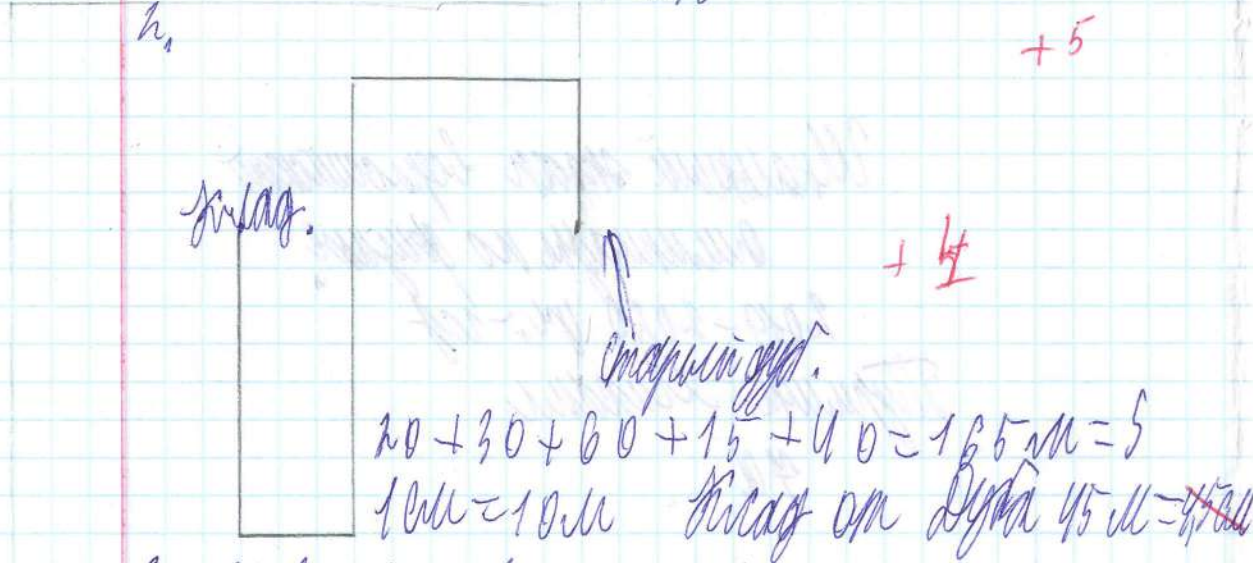 2.
+ 5
Клад.
+ 4
старый дуб.
20 + 30 + 60 + 15 + 40 = 165 м = S
1 см = 10 м Клад от Дуба 45 м = 4,5 см